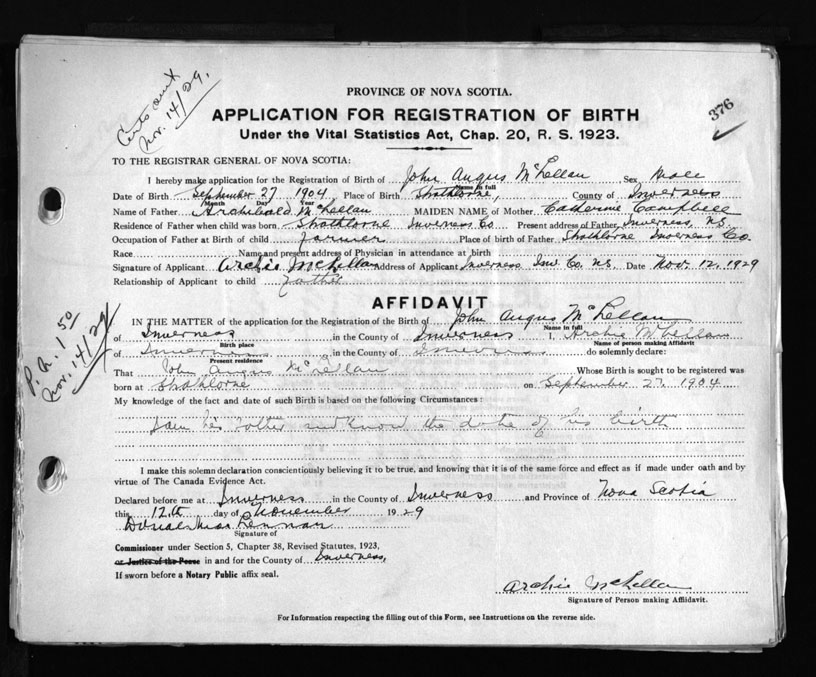 PROVINCE OF NOVA SCOTIA.
376
APPLICATION FOR REGISTRATION OF BIRTH
Under the Vital Statistics Act, Chap. 20, R. S. 1923.
Nov. 14/29.
TO THE REGISTRAR GENERAL OF NOVA SCOTIA:
I hereby make application for the Registration of Birth of John Angus McLellan Sex Male
Name in full
Date of Birth September 27 1904 Place of Birth Strathlorne, County of Inverness
Month Day Year
Name of Father Archibald McLellan MAIDEN NAME of Mother Catherine Campbell
Residence of Father when child was born Strathlorne Inverness Co Present address of Father Inverness, N.S.
Occupation of Father at Birth of child farmer Place of birth of Father Strathlorne Inverness Co.
Race Name and present address of Physician in attendance at birth
Signature of Applicant Archie McLellan Address of Applicant Inverness Inv. Co. N.S. Date Nov. 12, 1929
Relationship of Applicant to child father
AFFIDAVIT
IN THE MATTER of the application for the Registration of the Birth of John Angus McLellan
Name in full
of Inverness in the County of Inverness I, Archie McLellan
Birth place Name of person making Affidavit
of Inverness in the County of Inverness do solemnly declare:
Present residence
That John Angus McLellan Whose Birth is sought to be registered was
born at Strathlorne on September 27, 1904
P.A. 1.50
Nov. 14/29
My knowledge of the fact and date of such Birth is based on the following Circumstances:
I am his father and know the date of his birth
I make this solemn declaration conscientiously believing it to be true, and knowing that it is of the same force and effect as if made under oath and by
virtue of The Canada Evidence Act.
Declared before me at Inverness in the County of Inverness and Province of Nova Scotia
this 12th day of November 1929
Donald MacLennan
Signature of
Commissioner under Section 5, Chapter 38, Revised Statutes, 1923,
or Justice of the Peace in and for the County of Inverness,
If sworn before a Notary Public affix seal.
Archie McLellan
Signature of Person making Affidavit.
For Information respecting the filling out of this Form, see Instructions on the reverse side.